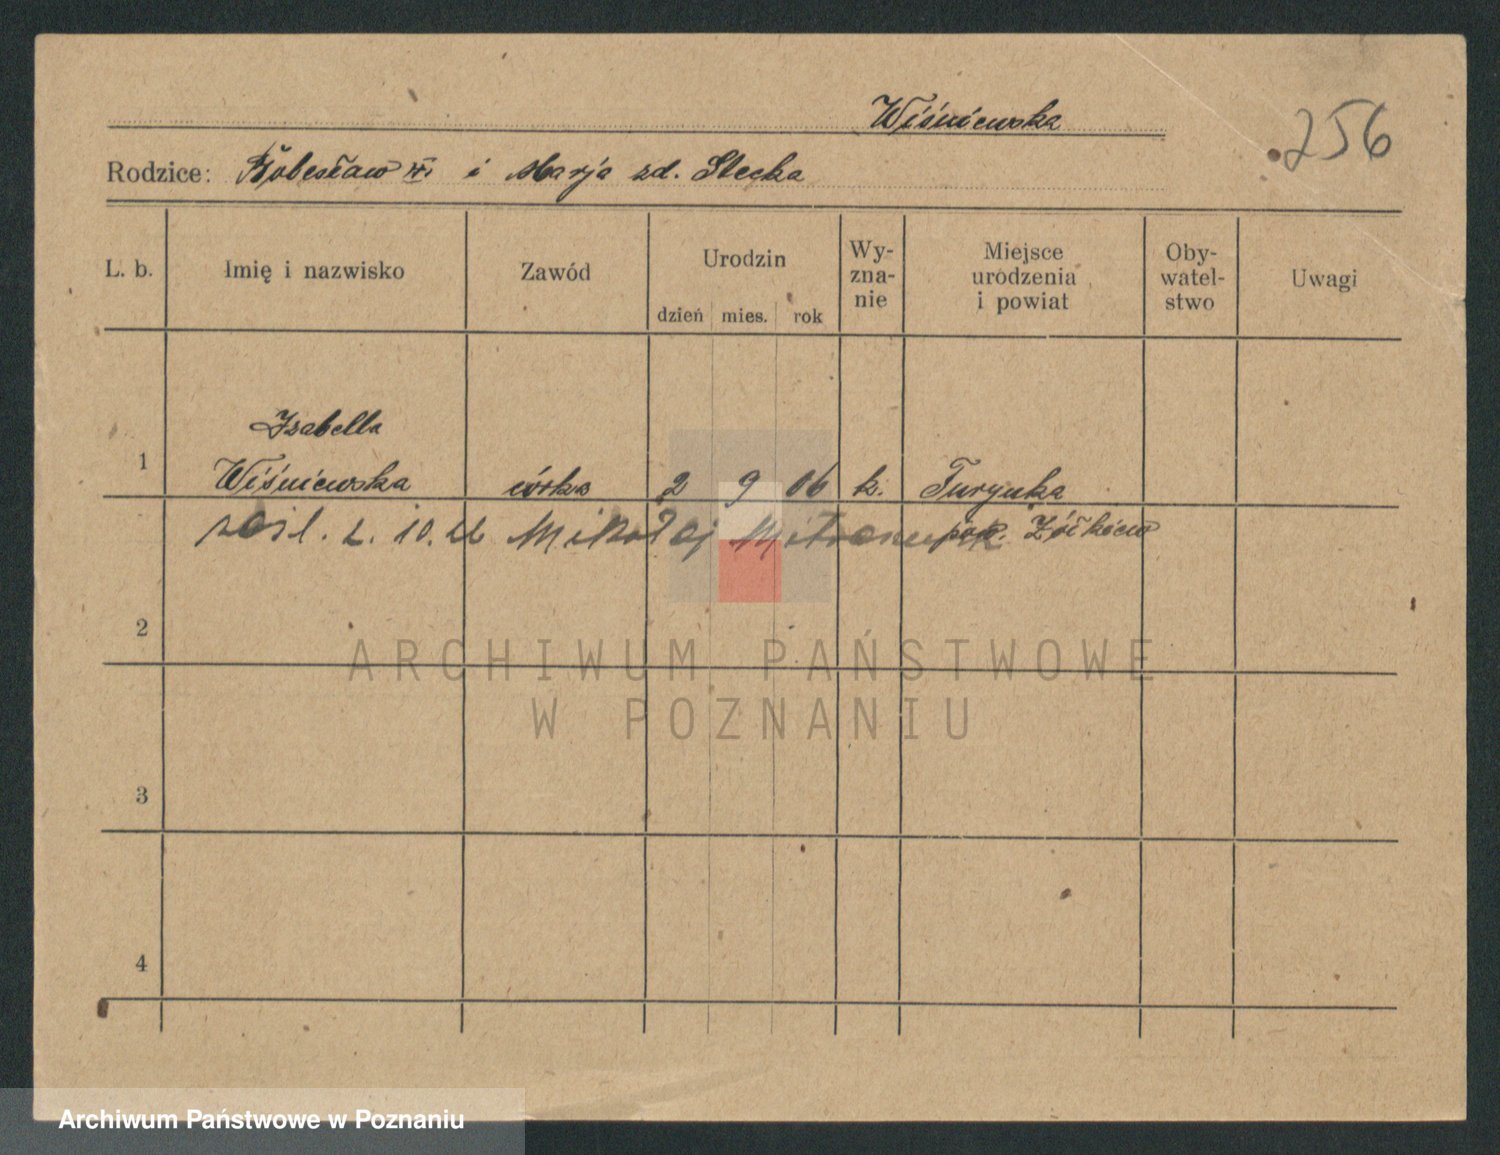 Wiśniewska
256
Rodzice: Bolesław W. i Marja zd. Stecka
L. b.
Imię i nazwisko
Zawód
Urodzin
dzień mies. rok
Wy-
zna-
nie
Miejsce
urodzenia
i powiat
Oby-
watel-
stwo
Uwagi
Izabella
1 Wiśniewska córka 2 9 06 k. Turynka
zaśl. 2. 10. 22 Mikołaj
pow. Żółkiew
2
3
4
ARCHIWUM PAŃSTWOWE
W POZNANIU
Archiwum Państwowe w Poznaniu